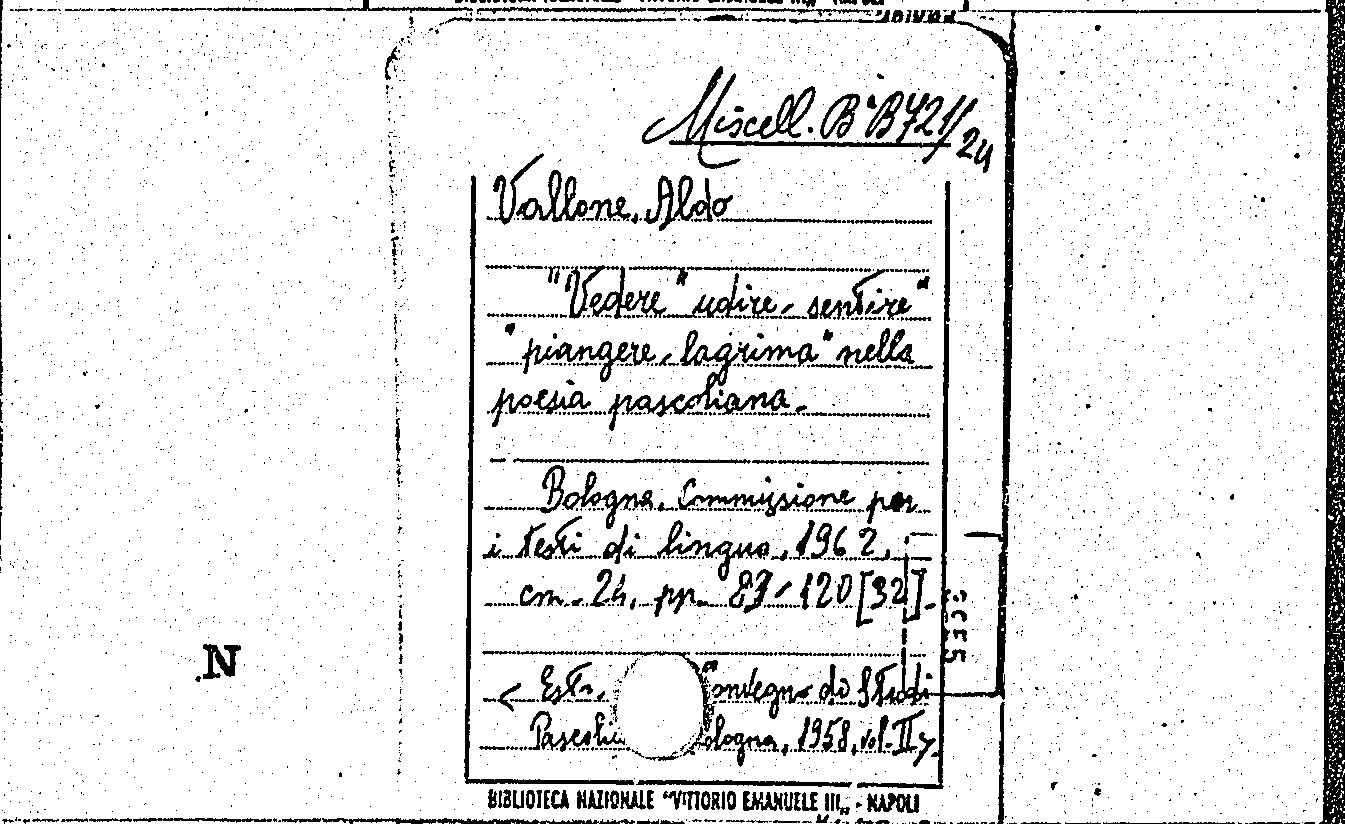 Miscell. B* B721/24
Vallone, Aldo
"Vedere" udire - sentire"
"piangere - lagrima" nella
poesia pascoliana.
Bologna, Commissione per
i testi di lingua, 1962.
cm. 24, pp. 83-120 [32].
< Estr. "Convegno di Studi
Bologna, 1958, vol. II >.
N
BIBLIOTECA NAZIONALE "VITTORIO EMANUELE III„ - NAPOLI